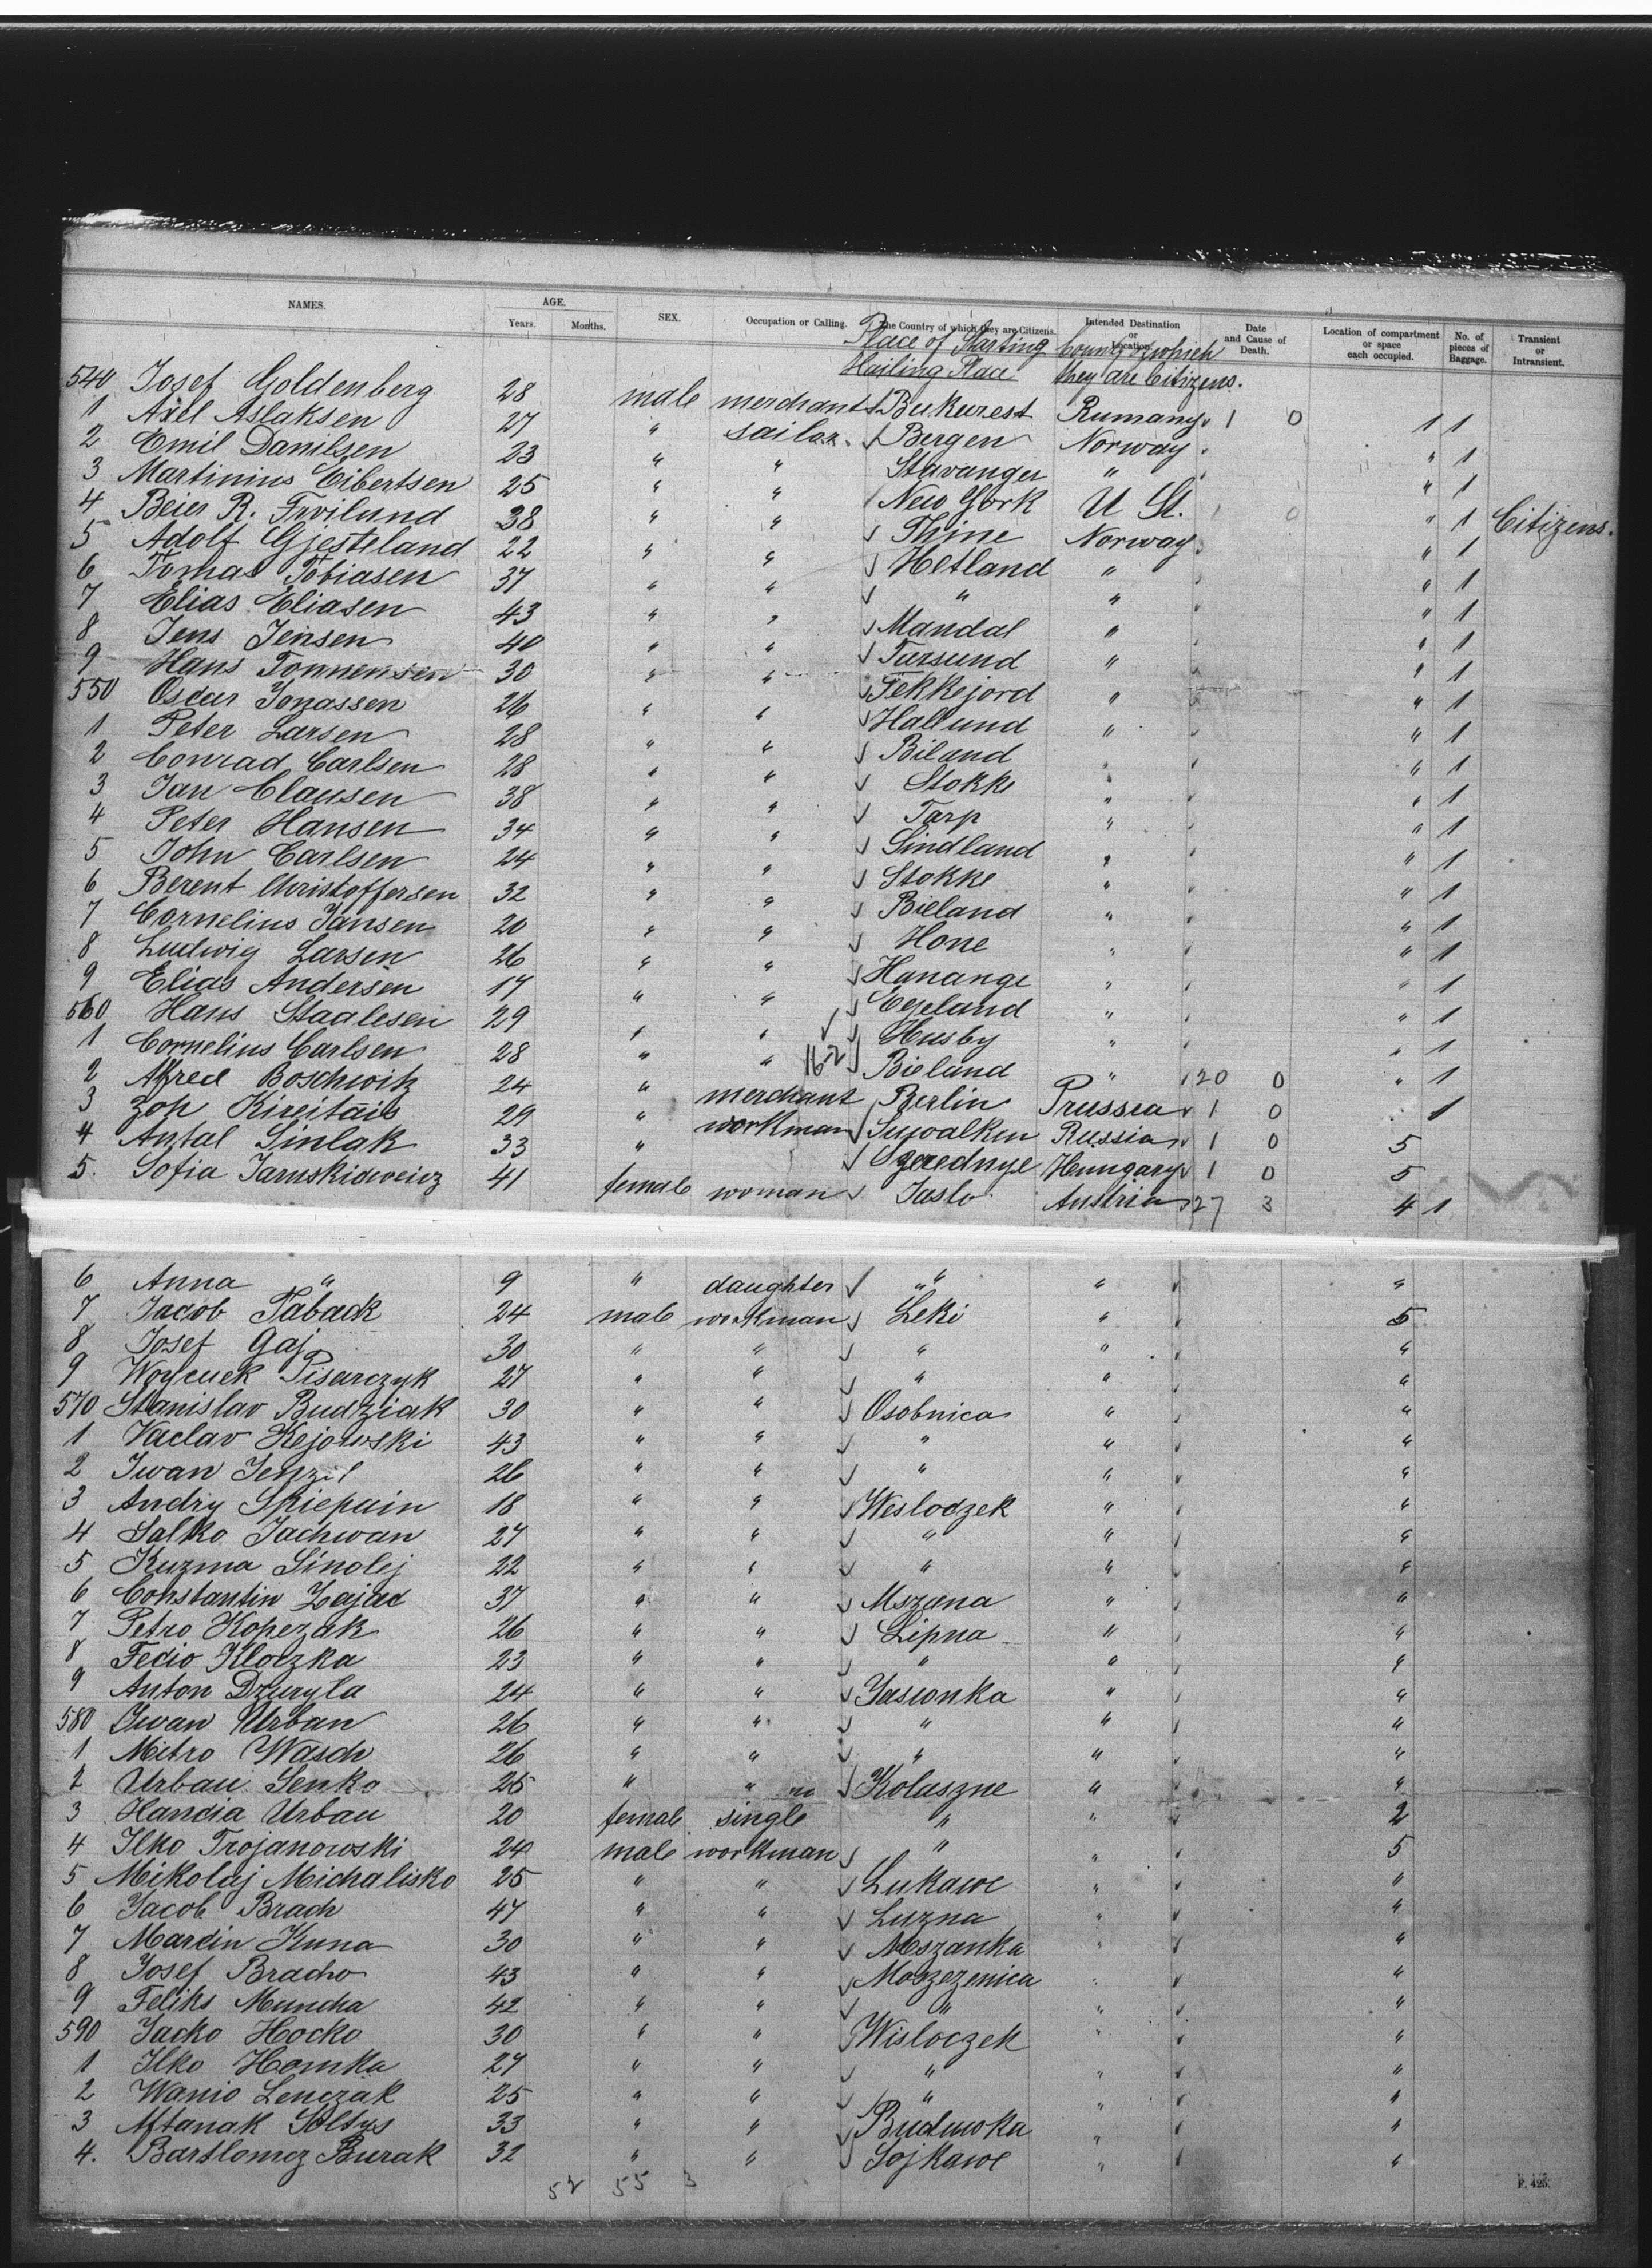 NAMES. AGE. SEX. Occupation or Calling. The Country of which they are Citizens. Intended Destination or Location. Date and Cause of Death. Location of compartment or space each occupied. No. of pieces of Baggage. Transient or Intransient.
Years. Months.
Place of Starting County of which
Hailing Place they are Citizens.
540 Josef Goldenberg 28 male merchant Bukurest Rumany 1 0 1 1
1 Axel Aslaksen 27 " sailor Bergen Norway " 1
2 Emil Danilsen 23 " " Stavanger " " 1
3 Martinius Eibertsen 25 " " New York U St. " 1 Citizens.
4 Beier R. Froilund 38 " " Thine Norway " 1
5 Adolf Gjesteland 22 " " Hetland " " 1
6 Tomas Tobiasen 37 " " " " " 1
7 Elias Eliasen 43 " " Mandal " " 1
8 Jens Jensen 40 " " Farsund " " 1
9 Hans Tonnensen 30 " " Fekkejord " " 1
550 Oscar Jonassen 26 " " Hallund " " 1
1 Peter Larsen 28 " " Biland " " 1
2 Conrad Carlsen 28 " " Stokke " " 1
3 Jan Clausen 38 " " Tarp " " 1
4 Peter Hansen 34 " " Lindland " " 1
5 John Carlsen 24 " " Stokke " " 1
6 Berent Christoffersen 32 " " Bieland " " 1
7 Cornelius Jansen 20 " " Hone " " 1
8 Ludwig Larsen 26 " " Hanange " " 1
9 Elias Andersen 17 " " Egeland " " 1
560 Hans Staalesen 29 " " Husby " " 1
1 Cornelius Carlsen 28 " " Bieland " 20 0 " 1
2 Alfred Boschwitz 24 " merchant Berlin Prussia 1 0 1
3 Zoh Kireitais 29 " workman Suwalken Russia 1 0 5
4 Antal Sinlak 33 " Szerednye Hungary 1 0 5
5. Sofia Jarnskidweicz 41 female woman Jaslo Austria 27 3 4 1
6 Anna " 9 " daughter " " "
7 Jacob Taback 24 male workman Leki " 5
8 Josef Gaj 30 " " " " "
9 Woycuek Pisarczyk 27 " " " " "
570 Stanislav Budziak 30 " " Osobnica " "
1 Vaclav Kejowski 43 " " " " "
2 Iwan Jenzil 26 " " " " "
3 Andry Skiepuin 18 " " Weslodzek " "
4 Salko Jachwan 27 " " " " "
5 Kuzma Sinolej 22 " " " " "
6 Constantin Zajac 37 " " Mszana " "
7 Petro Kopezak 26 " " Lipna " "
8 Fedio Kloczka 23 " " " " "
9 Anton Dzuryla 24 " " Jasionka " "
580 Iwan Urban 26 " " " " "
1 Mitro Wasch 26 " " " " "
2 Urban Senko 25 " " Kolaszne " "
3 Handia Urban 20 female single " " 2
4 Ilko Trojanowski 24 male workman " " 5
5 Mikolaj Michalisko 25 " " Lukawe " "
6 Jacob Brach 47 " " Luzna " "
7 Marcin Kuna 30 " " Mszanka " "
8 Josef Bracho 43 " " Moszezenica " "
9 Feliks Muncha 42 " " " " "
590 Jacko Hocko 30 " " Wisloczek " "
1 Ilko Homka 27 " " " " "
2 Wanio Lenczak 25 " " " " "
3 Atanak Soltys 33 " " Buduwka " "
4. Bartlomez Burak 32 " " Sojkawe " "
52 55 3
F. 425.